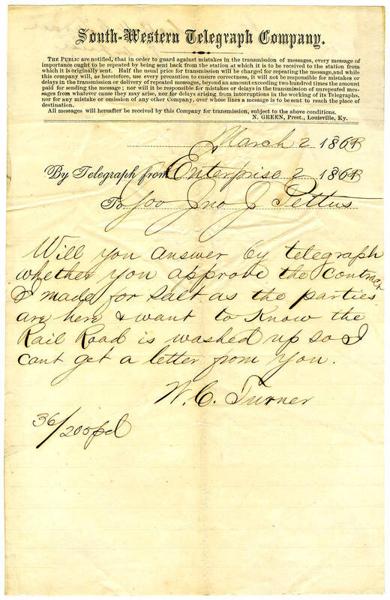 South-Western Telegraph Company.
THE PUBLIC are notified, that in order to guard against mistakes in the transmission of messages, every message of
importance ought to be repeated by being sent back from the station at which it is to be received to the station from
which it is originally sent. Half the usual price for transmission will be charged for repeating the message, and while
this company will, as heretofore, use every precaution to ensure correctness, it will not be responsible for mistakes or
delays in the transmission or delivery of repeated messages, beyond an amount exceeding two hundred times the amount
paid for sending the message; nor will it be responsible for mistakes or delays in the transmission of unrepeated messages
from whatever cause they may arise, nor for delays arising from interruptions in the working of its Telegraphs,
nor for any mistake or omission of any other Company, over whose lines a message is to be sent to reach the place of
destination.
All messages will hereafter be received by this Company for transmission, subject to the above conditions.
N. GREEN, Prest., Louisville, Ky.
March 2 1863
By Telegraph from Enterprise 2 1863
To Gov Jno J Pettus
Will you answer by telegraph
whether you approve the contract
I made for salt as the parties
are here & want to know the
Rail Road is washed up so I
cant get a letter from you.
W. C. Turner
36/200pd